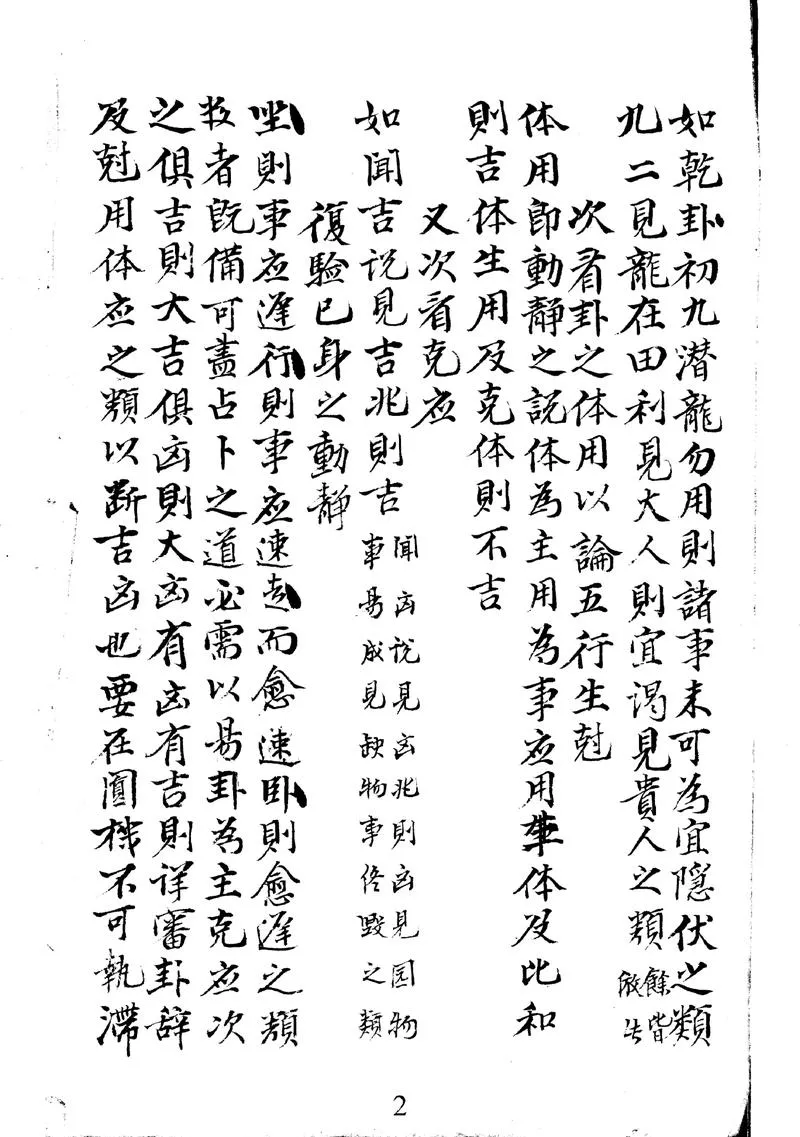 如乾卦初九潜龍勿用則諸事未可為宜隱伏之類
九二見龍在田利見大人則宜謁見貴人之類餘皆
倣此
次看卦之体用以論五行生尅
体用即動靜之説体為主用為事应用生体及比和
則吉体生用及克体則不吉
又次看克应
如闻吉说見吉兆則吉闻凶说見凶兆則凶見园物
事易成見缺物事终毁之類
復驗已身之動靜
坐則事应遲行則事应速走而愈速卧則愈遲之類
数者既備可盡占卜之道必需以易卦為主克应次
之俱吉則大吉俱凶則大凶有凶有吉則详審卦辞
及尅用体应之類以断吉凶也要在圓機不可執滯
2